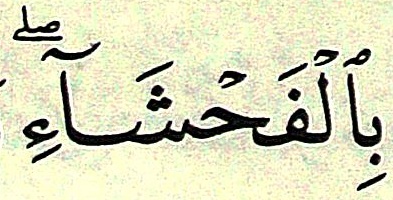 بِٱلْفَحْشَآءِۖ